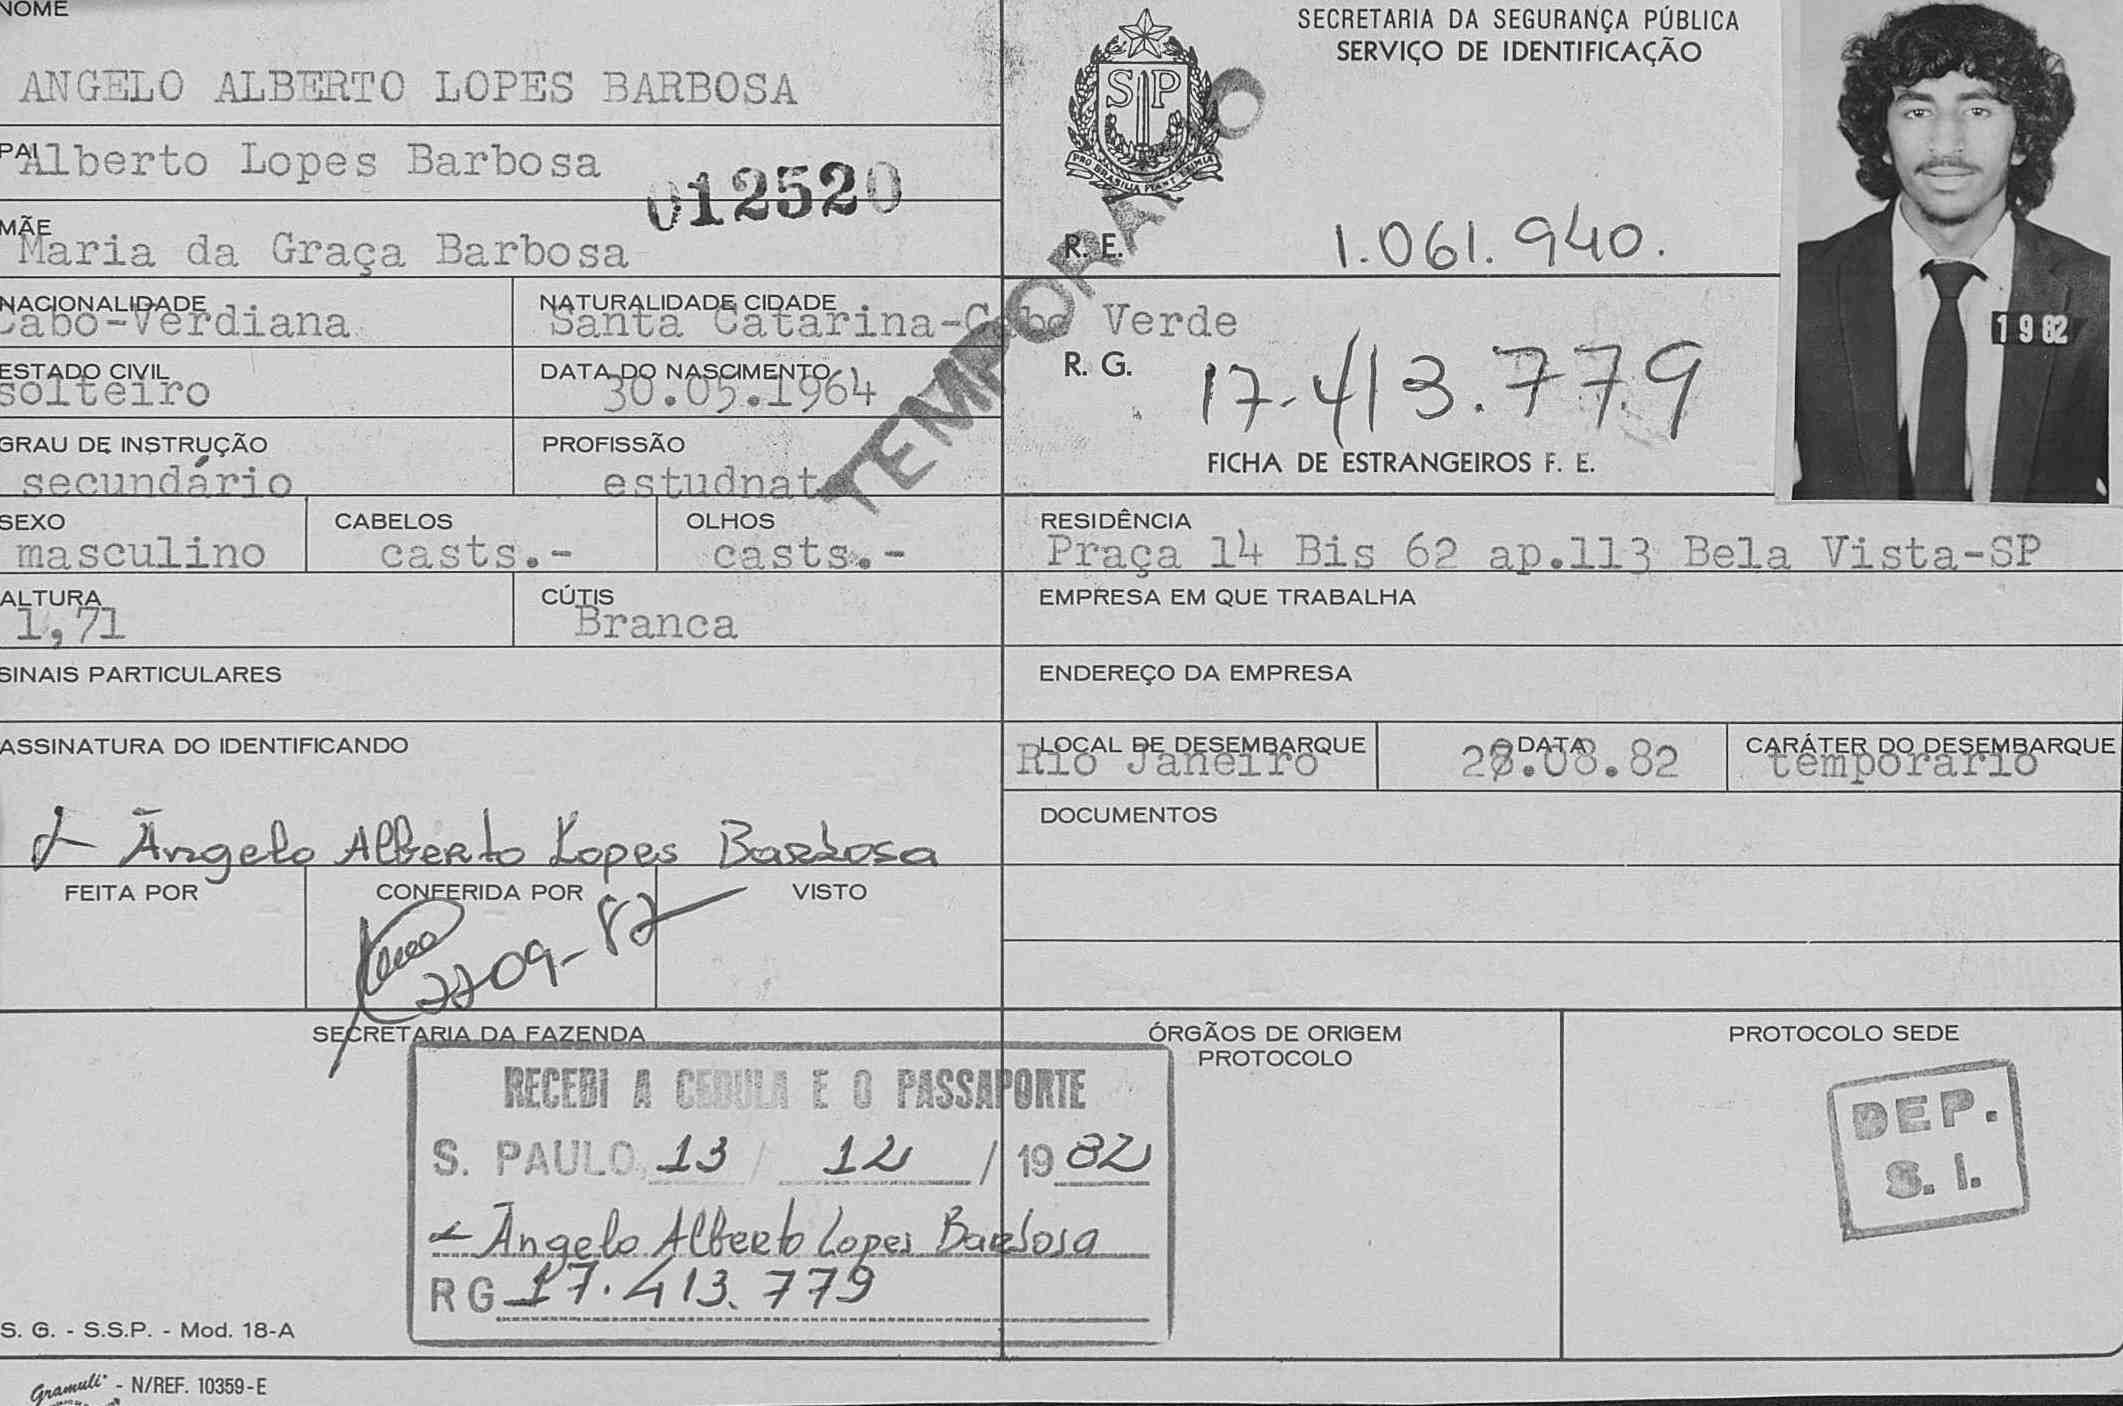 NOME
ANGELO ALBERTO LOPES BARBOSA
PAI
Alberto Lopes Barbosa
012520
MÃE
Maria da Graça Barbosa
NACIONALIDADE
Cabo-Verdiana
NATURALIDADE CIDADE
Santa Catarina-Cabo Verde
ESTADO CIVIL
solteiro
DATA DO NASCIMENTO
30.05.1964
GRAU DE INSTRUÇÃO
secundário
PROFISSÃO
estudnat
SEXO
masculino
CABELOS
casts.-
OLHOS
casts.-
ALTURA
1,71
CÚTIS
Branca
SINAIS PARTICULARES
ASSINATURA DO IDENTIFICANDO
Ângelo Alberto Lopes Barbosa
FEITA POR
CONFERIDA POR
2209-82
VISTO
SECRETARIA DA FAZENDA
SECRETARIA DA SEGURANÇA PÚBLICA
SERVIÇO DE IDENTIFICAÇÃO
SP
PRO BRASILIA FIANT EXIMIA
TEMPORARIO
R. E.
1.061.940.
R. G.
17.413.779
FICHA DE ESTRANGEIROS F. E.
1982
RESIDÊNCIA
Praça 14 Bis 62 ap.113 Bela Vista-SP
EMPRESA EM QUE TRABALHA
ENDEREÇO DA EMPRESA
LOCAL DE DESEMBARQUE
Rio Janeiro
DATA
28.08.82
CARÁTER DO DESEMBARQUE
temporario
DOCUMENTOS
ÓRGÃOS DE ORIGEM
PROTOCOLO
PROTOCOLO SEDE
DEP.
S. I.
RECEBI A CEDULA E O PASSAPORTE
S. PAULO, 13 / 12 / 1982
Ângelo Alberto Lopes Barbosa
RG 17.413.779
S. G. - S.S.P. - Mod. 18-A
Gramuli - N/REF. 10359-E